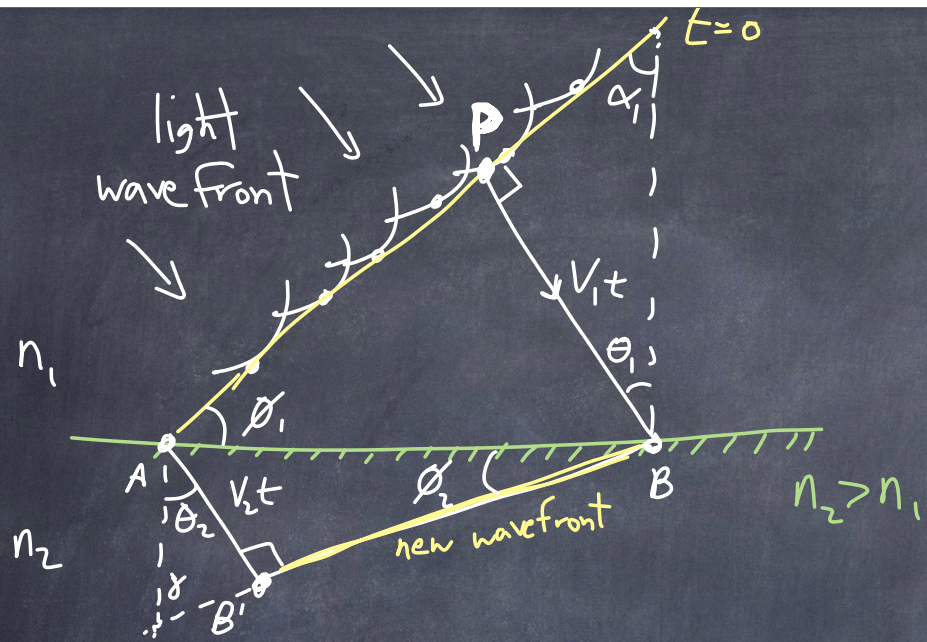 t=0
α₁
light
wavefront
P
V₁t
θ₁
n₁
ϕ₁
A
B
V₂t
θ₂
ϕ₂
n₂>n₁
new wavefront
n₂
γ
B'